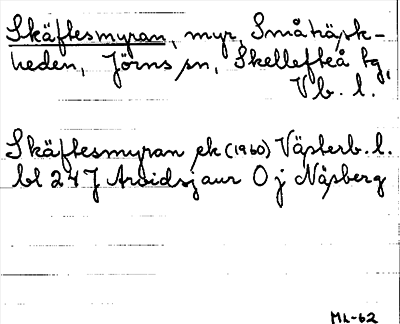 Skäftesmyran, myr, Småträsk-
heden, Jörns sn, Skellefteå tg,
Vb. l.
Skäftesmyran ek (1960) Västerb. l.
bl 24 J Arvidsjaur O j Näsberg
ML-62